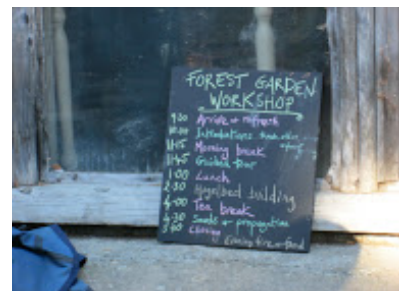 FOREST GARDEN
WORKSHOP
9:30 Arrive + refresh
Introductions
11:15 Morning break
11:45 Guided tour
1:00 Lunch
2:30 Hugelbed building
4:00 Tea break
4:30 Seeds + propagation
Closing